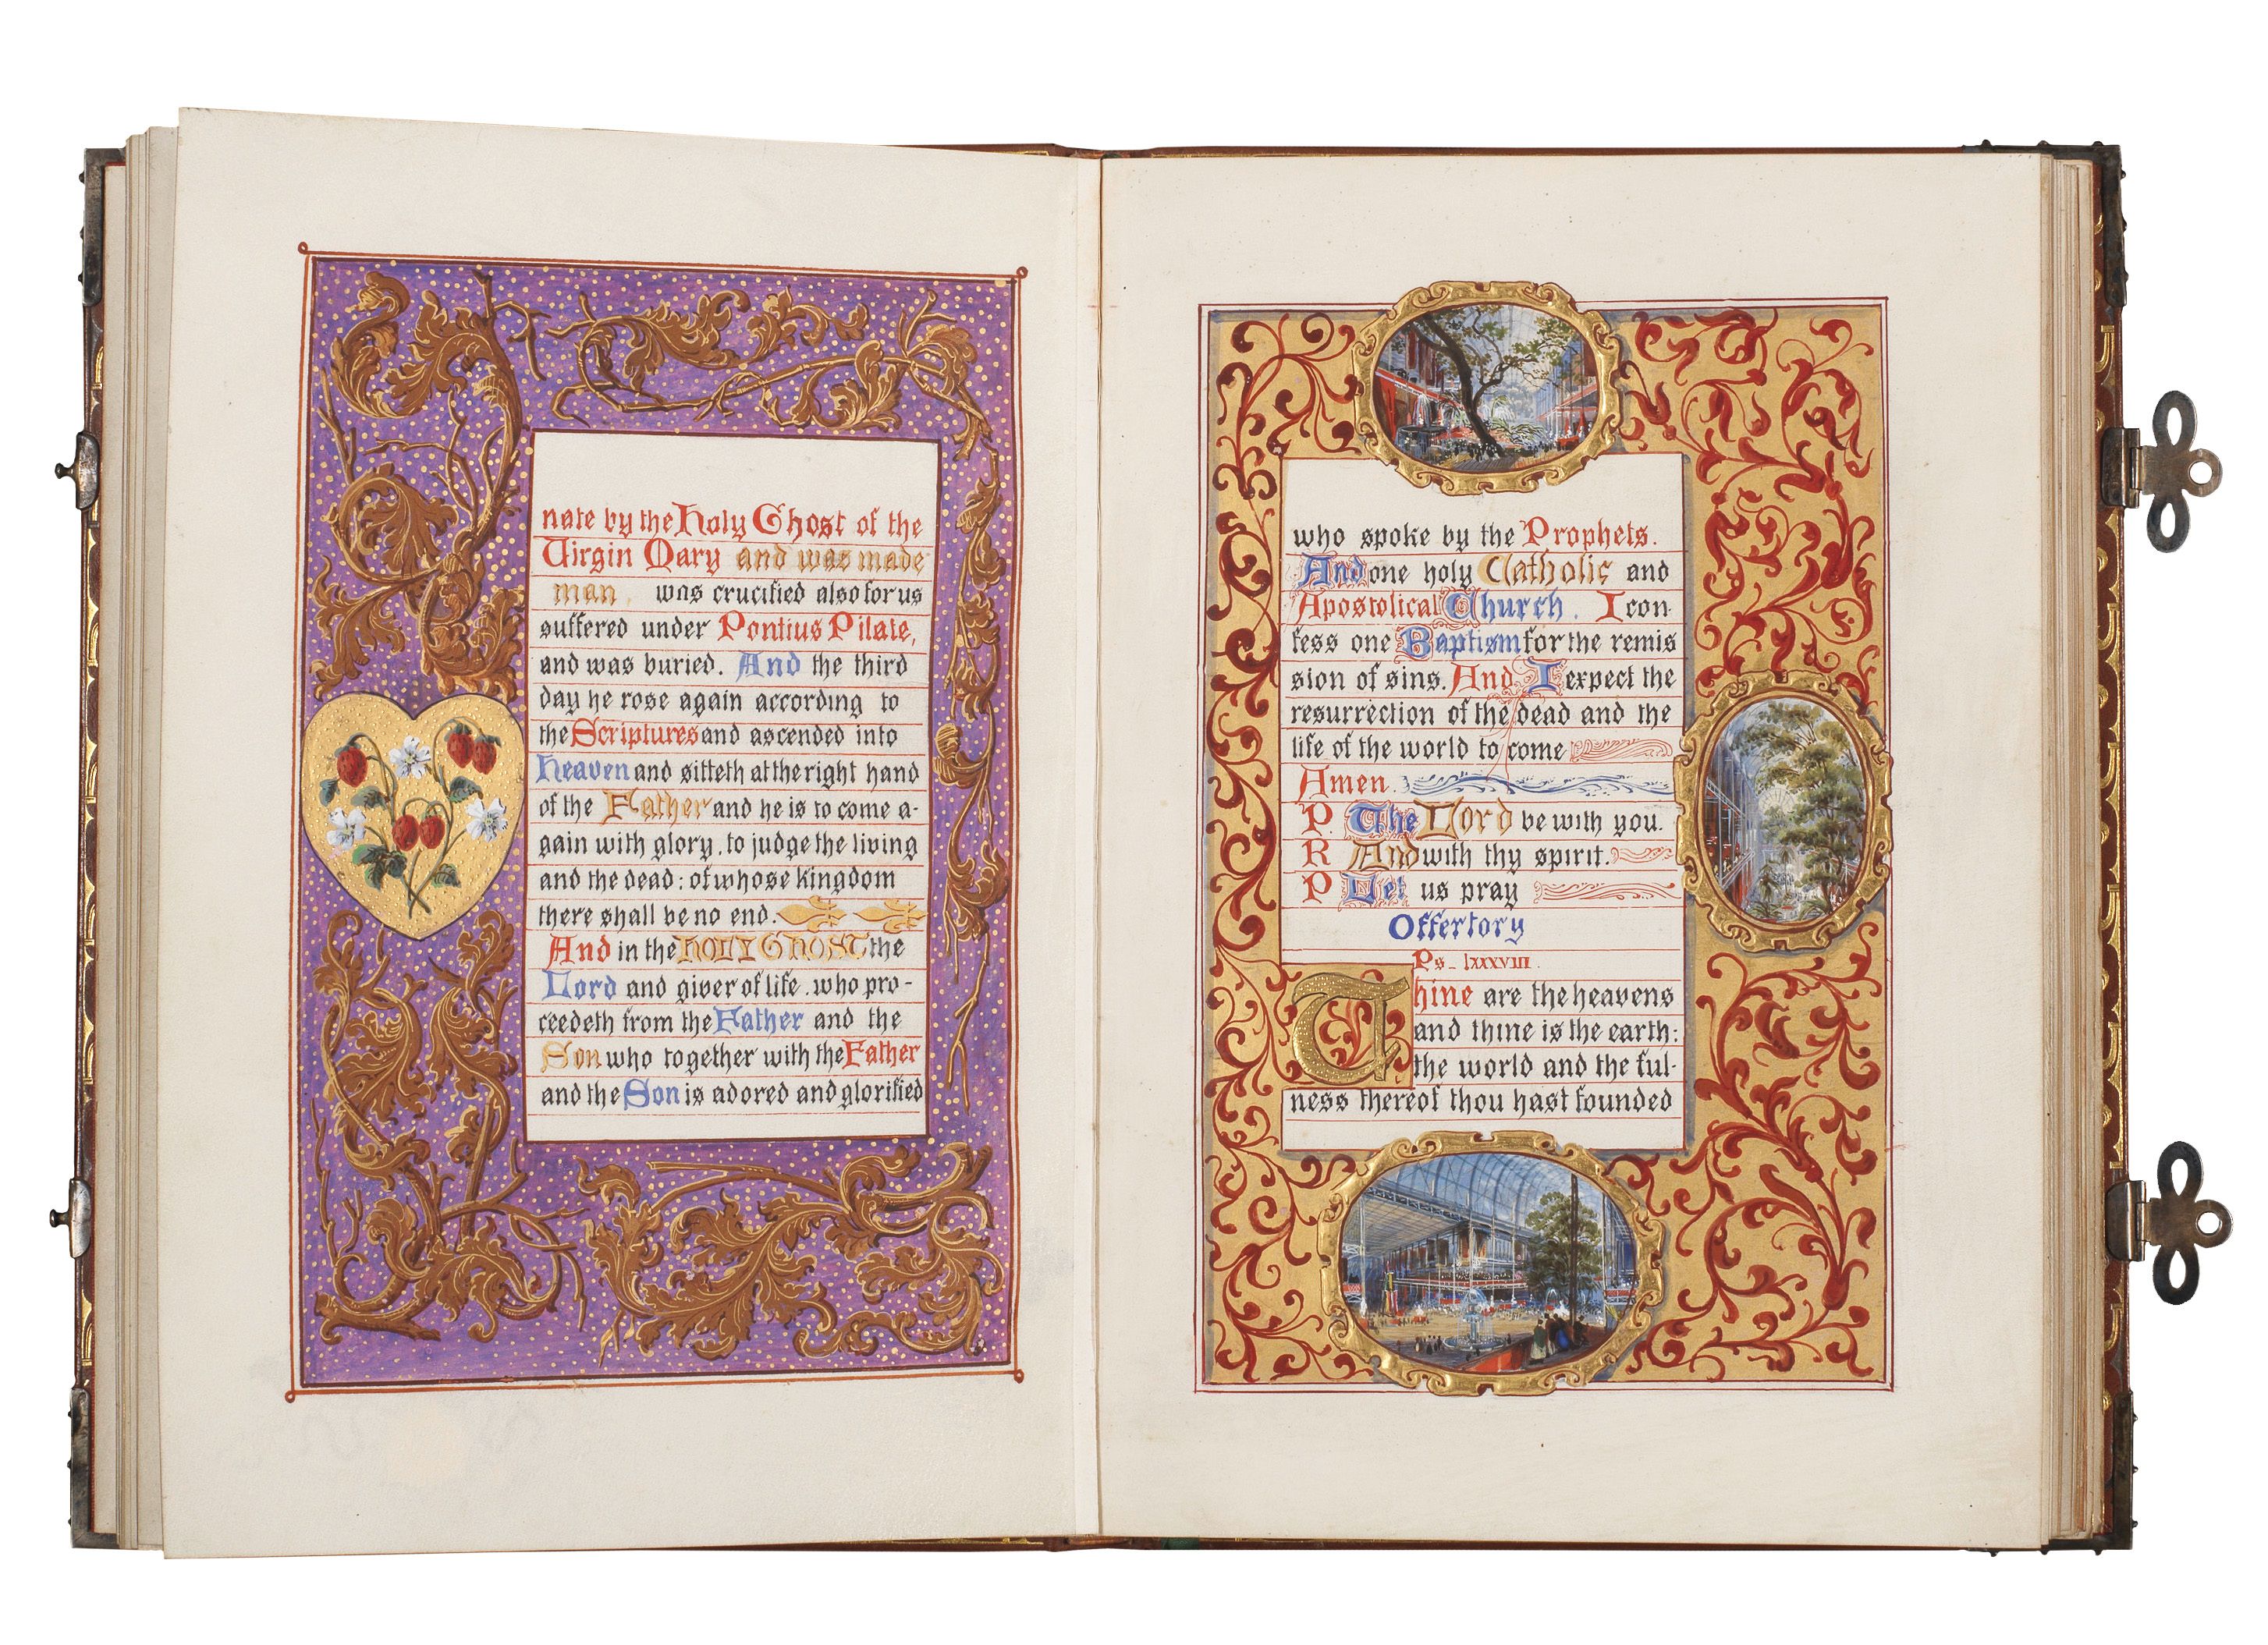 nate by the Holy Ghost of the
Virgin Mary and was made
man. was crucified also for us
suffered under Pontius Pilate,
and was buried. And the third
day he rose again according to
the Scriptures and ascended into
heaven and sitteth at the right hand
of the Father and he is to come a-
gain with glory, to judge the living
and the dead: of whose kingdom
there shall be no end.
And in the HOLY GHOST the
Lord and giver of life. who pro-
ceedeth from the Father and the
Son who together with the Father
and the Son is adored and glorified
who spoke by the Prophets.
And one holy Catholic and
Apostolical Church. I con
fess one Baptism for the remis
sion of sins. And I expect the
resurrection of the dead and the
life of the world to come
Amen.
P. The Lord be with you.
R And with thy spirit.
P Let us pray
Offertory
Ps_ lxxxviii.
Thine are the heavens
and thine is the earth:
the world and the ful-
ness thereof thou hast founded